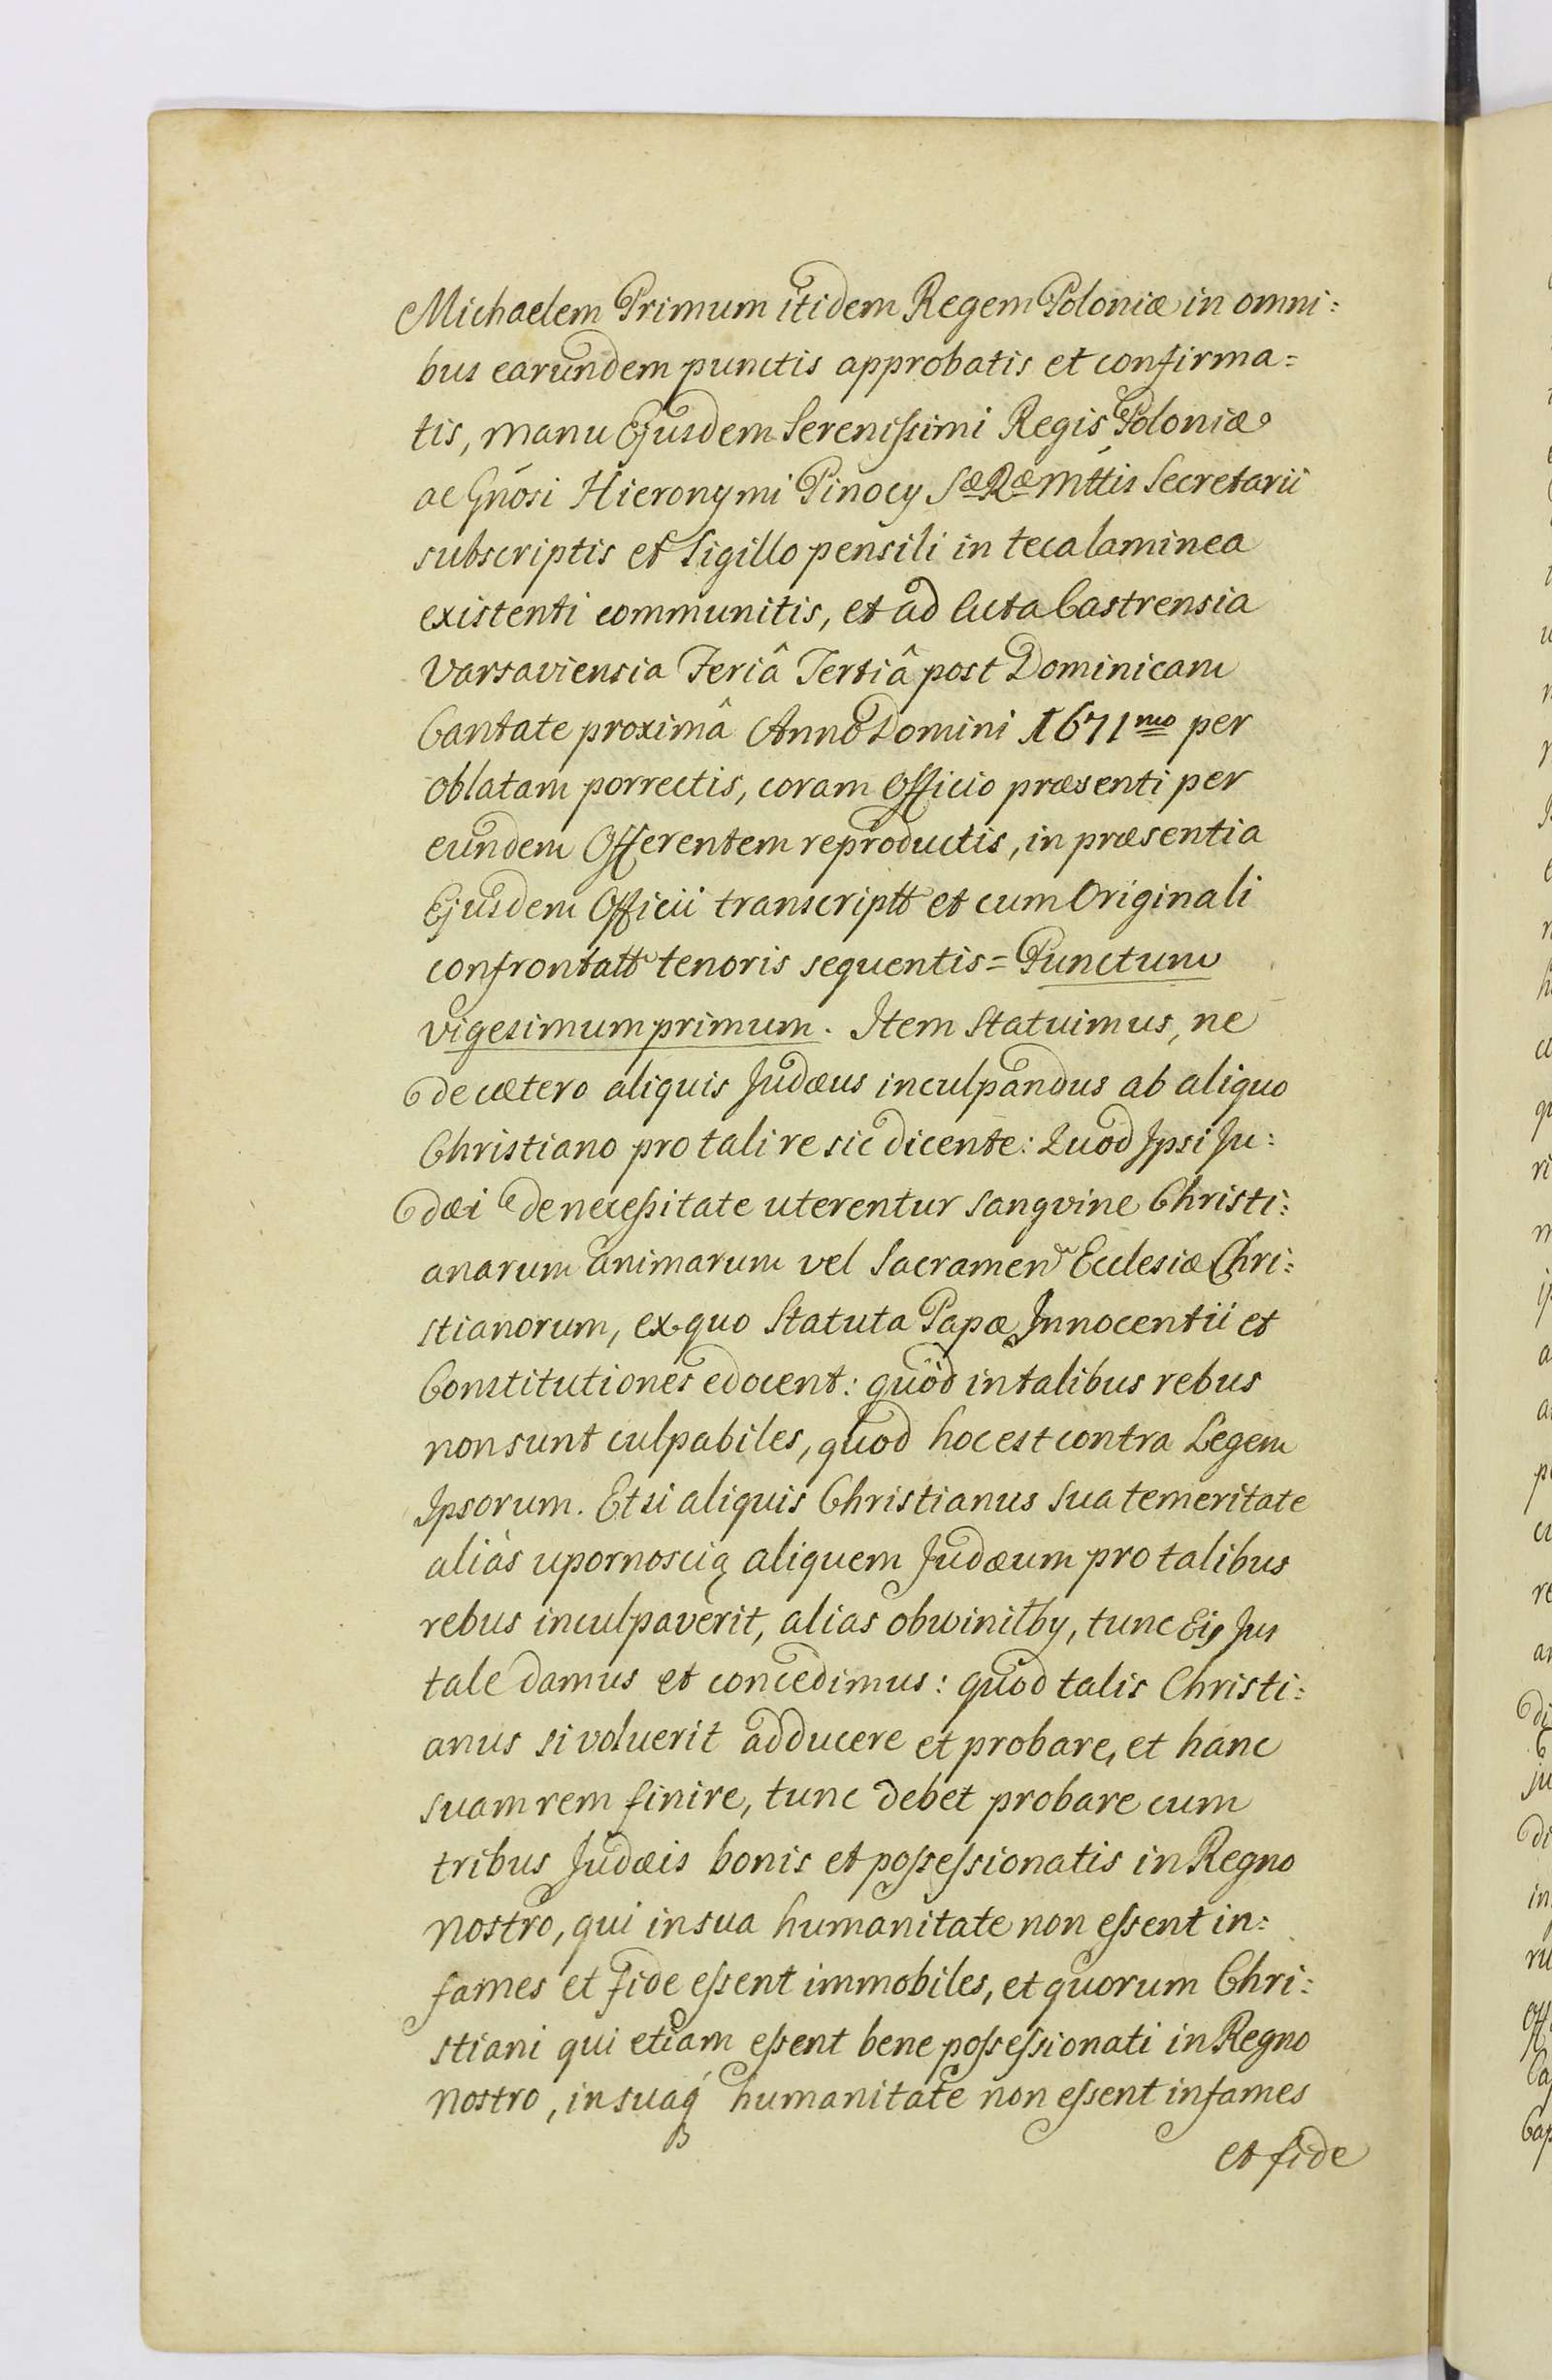 Michaelem Primum itidem Regem Poloniæ in omni=
bus earundem punctis approbatis et confirma=
tis, manu Ejusdem Serenissimi Regis Poloniæ
ac Gnosi Hieronymi Pinocy Sæ Ræ Mttis Secretarii
subscriptis et Sigillo pensili in teca laminea
existenti communitis, et ad Acta Castrensia
Varsaviensia Feriâ Tertiâ post Dominicam
Cantate proximâ Anno Domini 1671mo per
oblatam porrectis, coram Officio præsenti per
eundem Offerentem reproductis, in præsentia
Ejusdem Officii transcriptt et cum Originali
confrontatt tenoris sequentis = Punctum
vigesimum primum. Item Statuimus, ne
de cætero aliquis Judæus inculpandus ab aliquo
Christiano pro tali re sic dicente: Quod Ipsi Ju:
dæi de necessitate uterentur sangvine Christi:
anarum animarum vel Sacramen Ecclesiæ Chri:
stianorum, ex quo Statuta Papæ Innocentii et
Constitutiones edocent: quod in talibus rebus
non sunt culpabiles, quod hoc est contra Legem
Ipsorum. Et si aliquis Christianus sua temeritate
aliàs upornoscią aliquem Judæum pro talibus
rebus inculpaverit, alias obwiniłby, tunc Eis Jus
tale damus et concedimus: quod talis Christi:
anus si voluerit adducere et probare, et hanc
suam rem finire, tunc debet probare cum
tribus Judæis bonis et possessionatis in Regno
nostro, qui in sua humanitate non essent in:
fames et fide essent immobiles, et quorum Chri:
stiani qui etiam essent bene possessionati in Regno
nostro, in suaq humanitate non essent infames
et fide